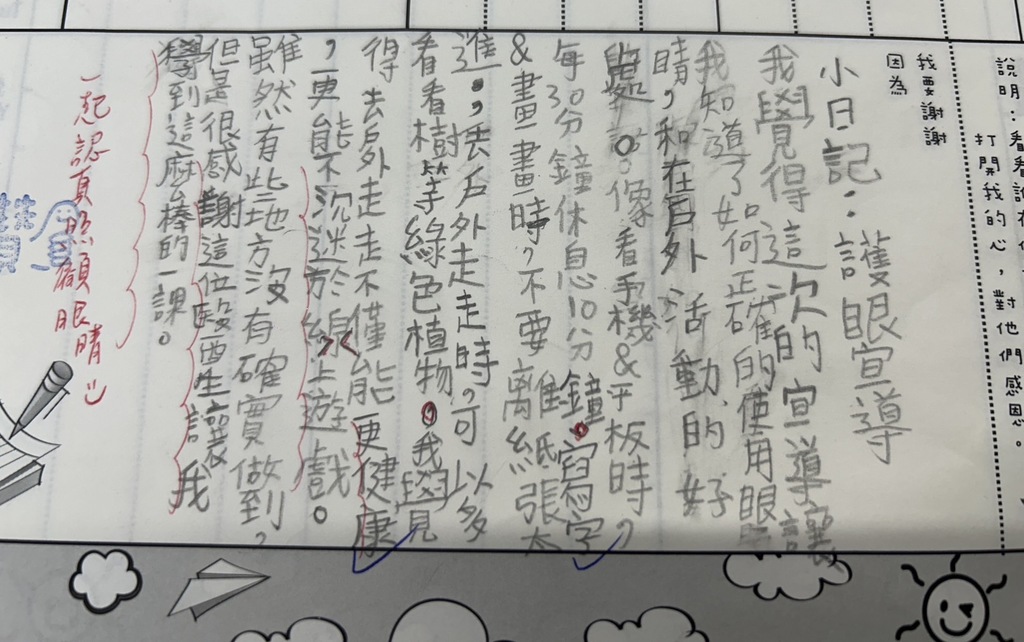 說明：看看誰在
打開我的心，對他們感恩。
我要謝謝
因為
小日記：護眼宣導
我覺得這次的宣導讓
我知道了如何正確的使用眼
睛，和在戶外活動的好
處。像看手機&平板時，
每30分鐘休息10分鐘。寫字
&畫畫時，不要离紙張太
進，去戶外走走時，可以多
看看樹等綠色植物。我覺
得去戶外走走不僅能更健康
，更能不沈迷於線上遊戲。
雖然有些地方沒有確實做到，
但是很感謝這位醫生讓我
學到這麻棒的一課。
一起認真照顧眼睛